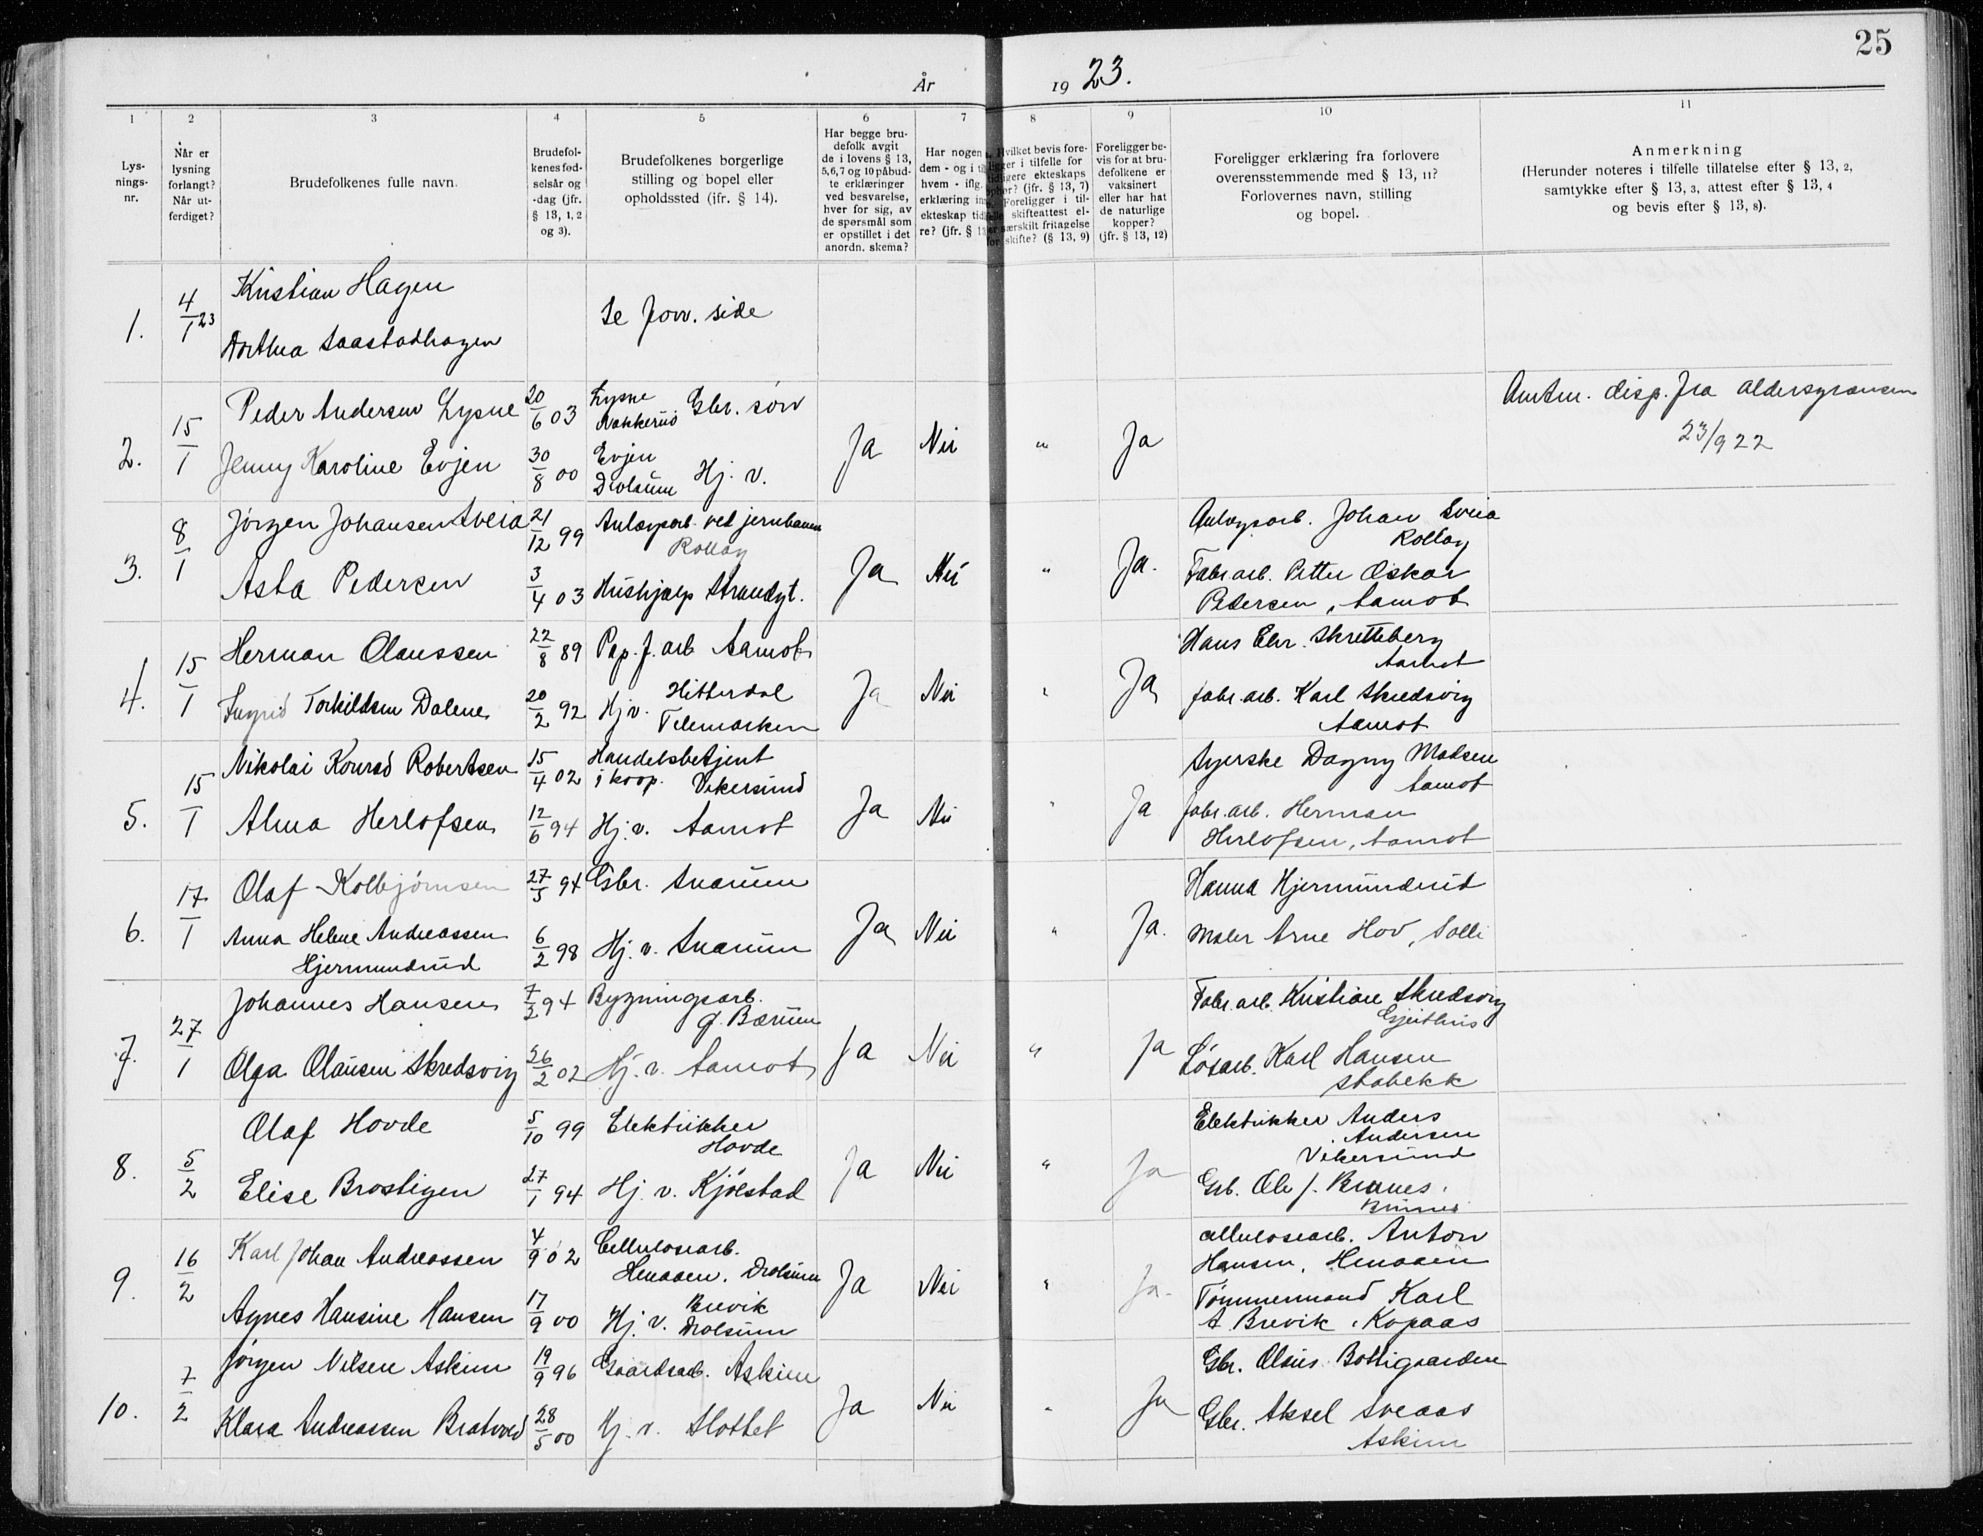 25
År 1923.
1 2 3 4 5 6 7 8 9 10 11
Lys-
nings-
nr.
Når er
lysning
forlangt?
Når ut-
ferdiget?
Brudefolkenes fulle navn.
Brudefol-
kenes fød-
selsår og
-dag (jfr.
§ 13, 1, 2
og 3).
Brudefolkenes borgerlige
stilling og bopel eller
opholdssted (jfr. § 14).
Har begge bru-
defolk avgit
de i lovens § 13,
5, 6, 7 og 10 påbud-
te erklæringer
ved besvarelse,
hver for sig, av
de spørsmål som
er opstillet i det
anordn. skema?
Har nogen
dem - og i
hvem - iflg.
erklæring
ekteskap
re? (jfr. §
Hvilket bevis fore-
ligger i tilfelle for
tidligere ekteskaps
ophør? (jfr. § 13, 7)
Foreligger i til-
felle skifteattest el-
ler særskilt fritagelse
for skifte? (§ 13, 9)
Foreligger be-
vis for at bru-
defolkene er
vaksinert
eller har hat
de naturlige
kopper?
(jfr. § 13, 12)
Foreligger erklæring fra forlovere
overensstemmende med § 13, 11?
Forlovernes navn, stilling
og bopel.
Anmerkning
(Herunder noteres i tilfelle tillatelse efter § 13, 2,
samtykke efter § 13, 3, attest efter § 13, 4
og bevis efter § 13, 8).
1. 4/1 23 Kristian Hagen
Dorthea Saastadhagen
Se forr. side
2. 15/1 Peder Andersen Lysne 20/6 03 Lysne
Nakkerud Gbr. søn
Jenny Karoline Evjen 30/8 00 Evjen
Drolsum Hj. v.
Ja Nei " Ja
Amtm. disp. fra aldersgrænsen
23/9 22
3. 8/1 Jörgen Johansen Sveia 21/12 99 Anlægsarb. ved jernbanen
Rollag
Asta Pedersen 3/4 03 Hushjælp Strandgt.
Ja Nei " Ja.
Anlægsarb. Johan Sveia
Rollag
Fabr. arb. Petter Oskar
Pedersen, Aamot
4. 15/1 Herman Olaussen 22/8 89 Pap. f. arb Aamot
Ingrid Torkildsen Dalene 20/2 92 Hj v. Hitterdal
Telemarken
Ja Nei " Ja
Hans Chr. Skretteberg
Aamot
fabr. arb. Karl Skredsvig
Aamot
5. 15/1 Nikolai Konrad Robertsen 15/4 02 Handelsbetjent
i koop. Vikersund
Alma Herlofsen 12/6 94 Hj. v. Aamot
Ja Nei " Ja
Syerske Dagny Madsen
Aamot
fabr. arb. Herman
Herlofsen, Aamot
6. 17/1 Olaf Kolbjörnsen 27/5 94 Gbr. Snarum
Anna Helene Andreassen
Hjermundrud 6/2 98 Hj. v. Snarum
Ja Nei " Ja.
Hanna Hjermundrud
Maler Arne Hov, Solli
7. 27/1 Johannes Hansen 7/2 94 Bygningsarb.
g. Bærum
Olga Olausen Skredsvig 26/2 02 Hj. v. Aamot
Ja Nei " Ja
Fabr. arb. Kristian Skredsvig
Gjeithus
Løsarb. Karl Hansen
Stabekk
8. 5/2 Olaf Hovde 5/10 99 Elektrikker
Hovde
Elise Brostigen 27/1 94 Hj. v. Kjölstad
Ja Nei " Ja
Elektrikker Anders
Andersen
Vikersund
Grb. Ole J. Brunes.
Brunes
9. 16/2 Karl Johan Andreassen 4/9 02 Cellulosearb.
Henaaen. Drolsum
Agnes Hansine Hansen 17/9 00 Hj. v. Brevik
Drolsum
Ja Nei " Ja.
Cellulosearb. Anton
Hansen, Henaaen
Tömmermand Karl
A. Brevik, Kopaas
10. 7/2 Jörgen Nilsen Askim 19/9 96 Gaardsarb. Askim
Klara Andreassen Bratvved 28/5 00 Hj. v. Slottet
Ja Nei " Ja
Gbr. Olaus Bottigaarden
Gbr. Aksel Sveaas
Askim